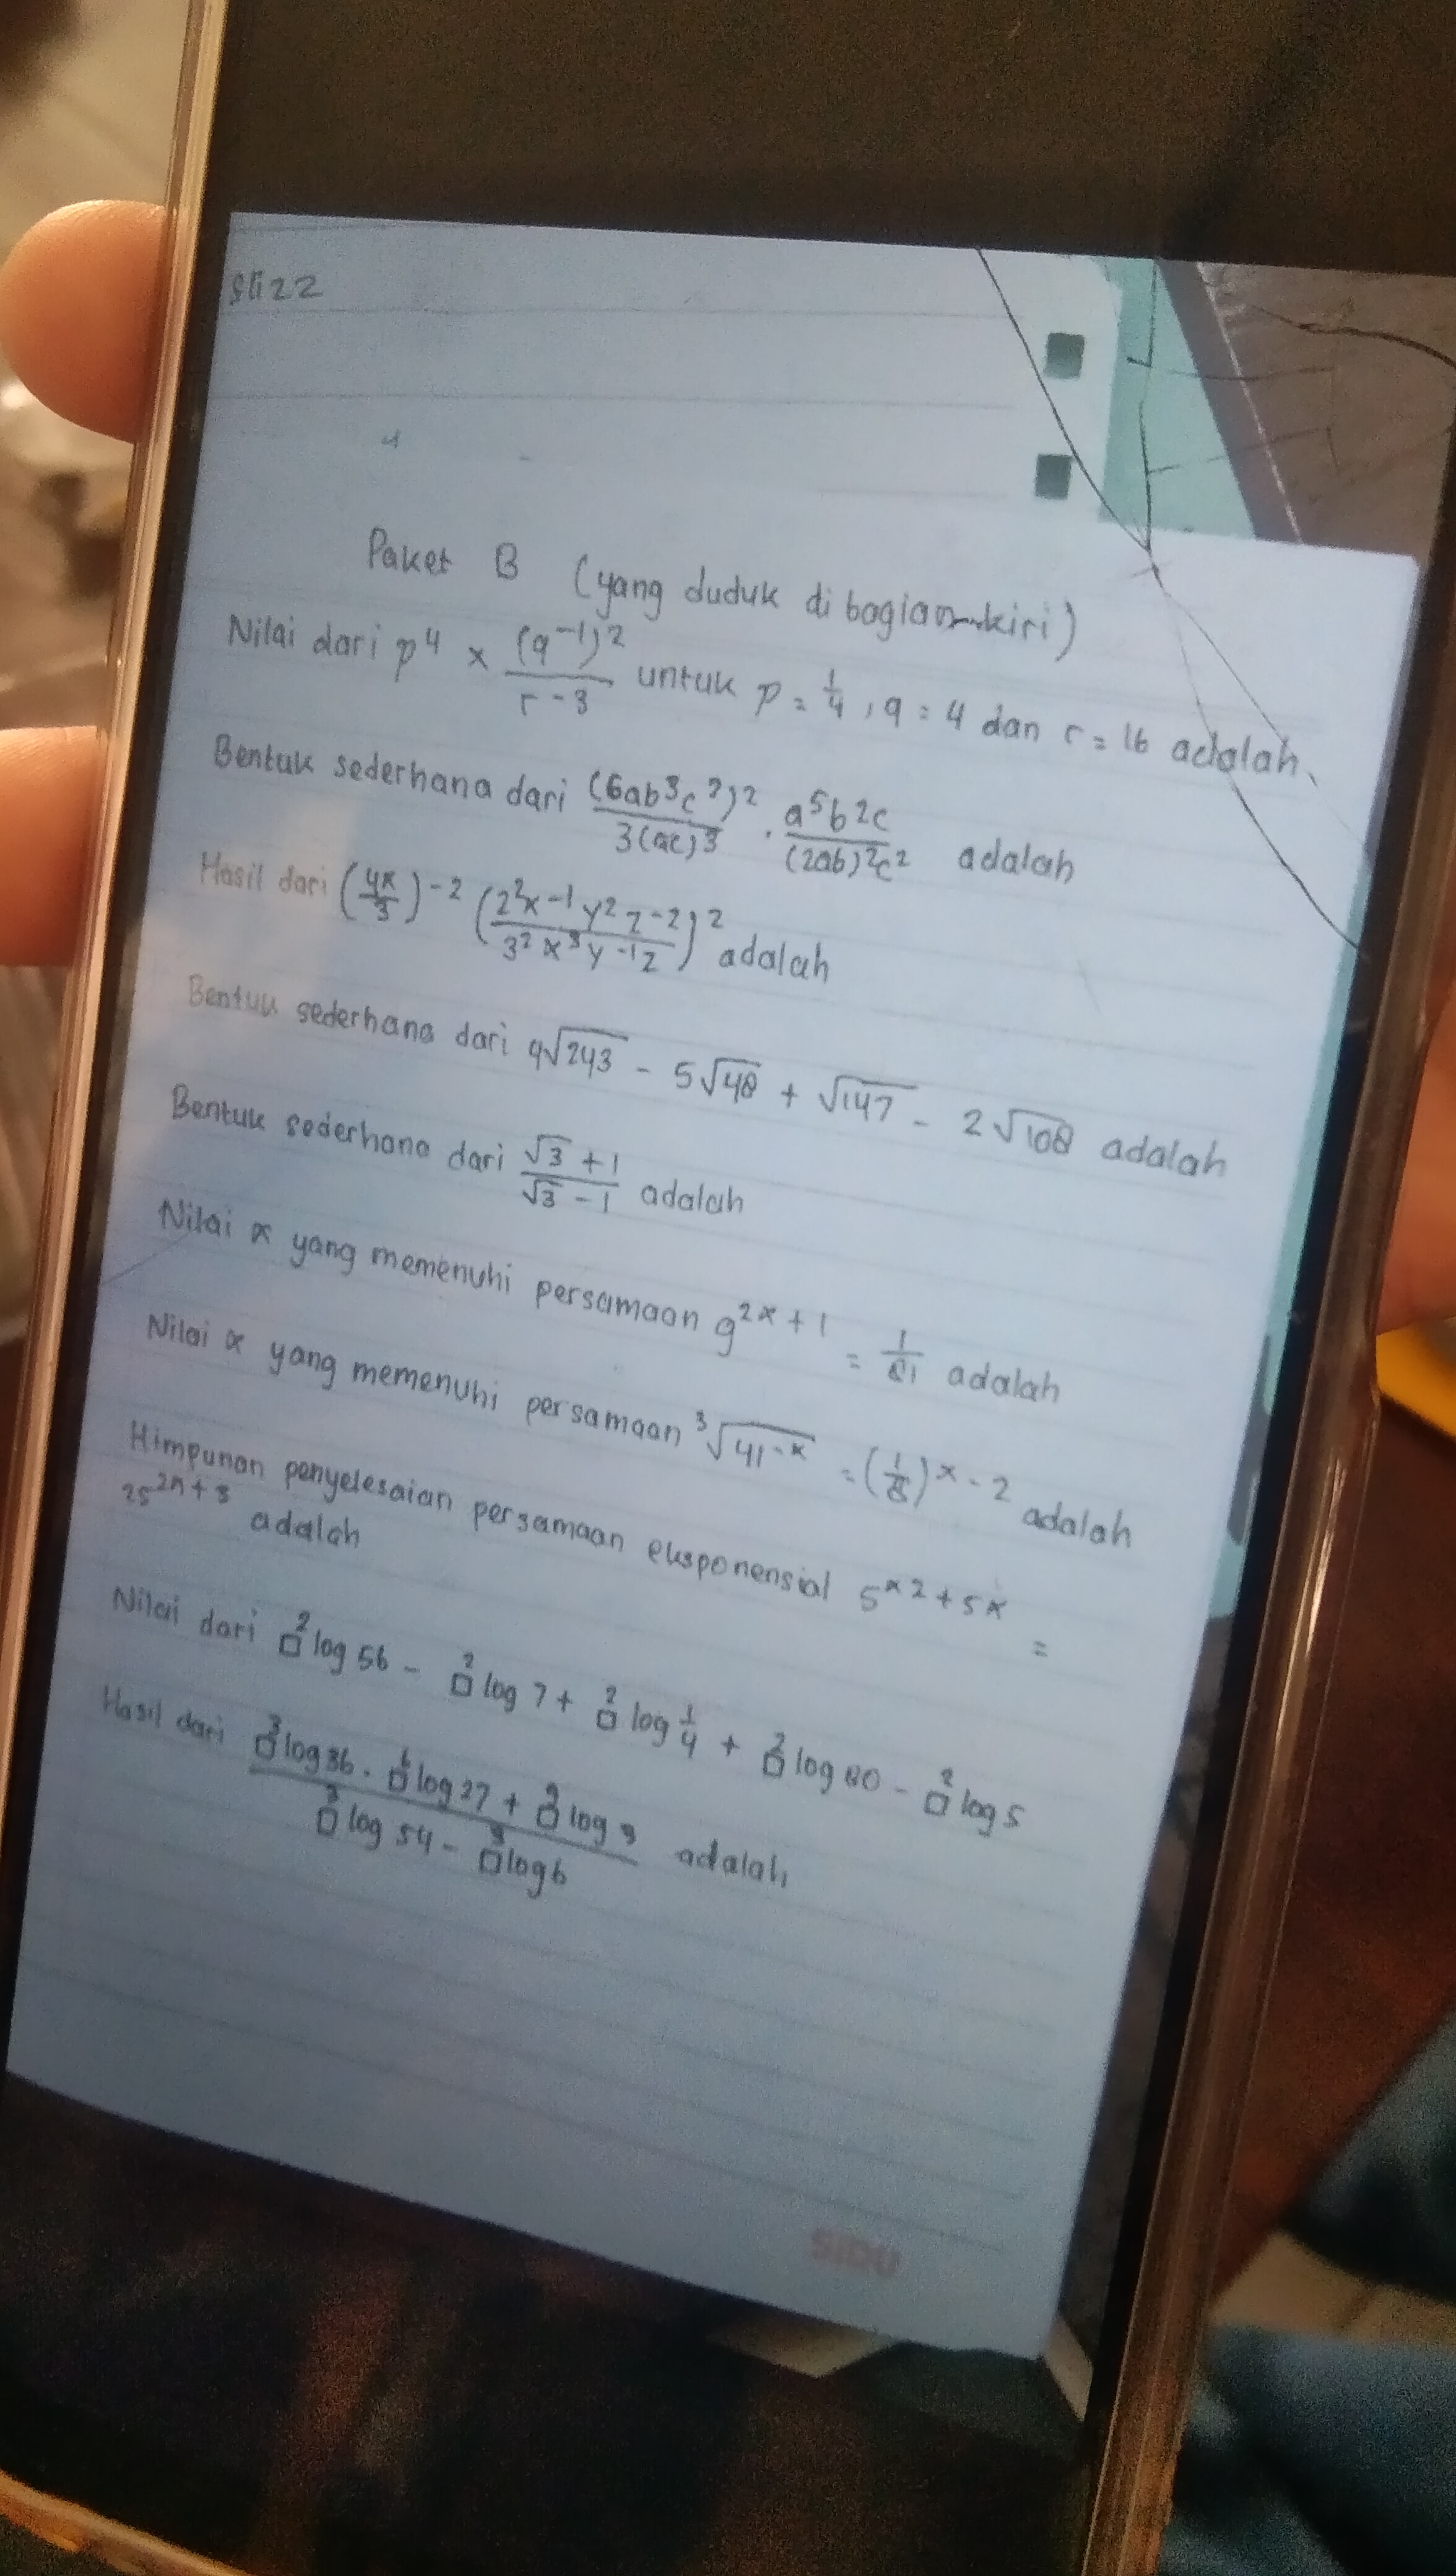 Paket B (yang duduk di bagian kiri)
Nilai dari p⁴ × (q⁻¹)² / r⁻³ untuk p = 1/4, q = 4 dan r = 16 adalah
Bentuk sederhana dari (6ab³c²)² / 3(ac)³ · a⁵b²c / (2ab)²c² adalah
Hasil dari (4x/3)⁻² (2²x⁻¹y²z⁻² / 3²x³y⁻¹z)² adalah
Bentuk sederhana dari 9√243 - 5√48 + √147 - 2√108 adalah
Bentuk sederhana dari √3 + 1 / √3 - 1 adalah
Nilai x yang memenuhi persamaan 9^2x + 1 = 1/81 adalah
Nilai x yang memenuhi persamaan ³√41-x = (1/8)^x - 2 adalah
Himpunan penyelesaian persamaan eksponensial 5^x2 + 5x =
adalah
Nilai dari □²log 56 - □²log 7 + □²log 1/4 + □²log 80 - □²log 5
Hasil dari □³log 36 . □⁶log 27 + □log 9 / □³log 54 - □³log 6 adalah
SIDU